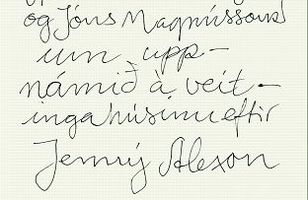 og Jóns Magnússonar
um upp-
námið á veit-
ingahúsinu eftir
Jenný Alexon